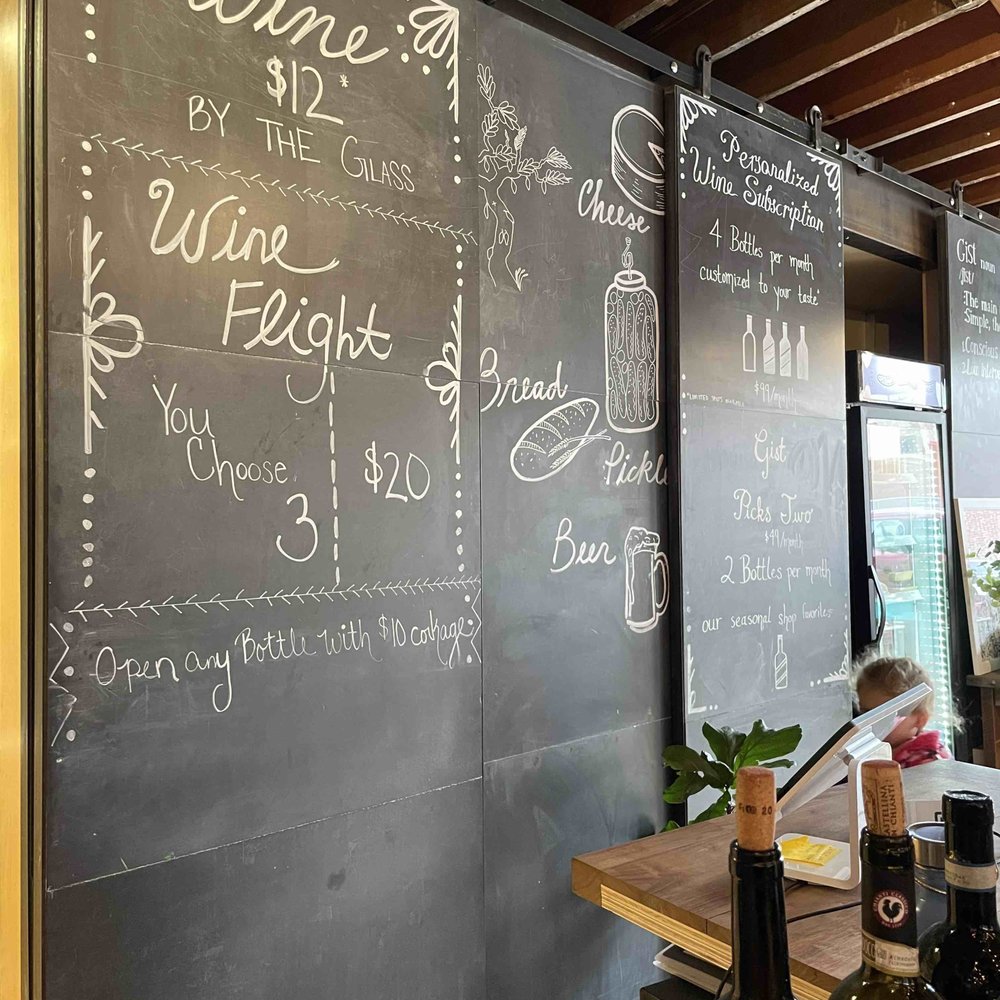 Wine
$12*
BY THE GLASS
Wine
Flight
You
Choose
3
$20
Open any Bottle with $10 corkage
Cheese
Bread
Pickle
Beer
Personalized
Wine Subscription
4 Bottles per month
customized to your taste*
$99/monthly
*LIMITED SPOTS AVAILABLE
Gist
Picks Two
$49/month
2 Bottles per month
our seasonal shop favorites
Gist noun
/jist/
:The main
Simple,
:Conscious